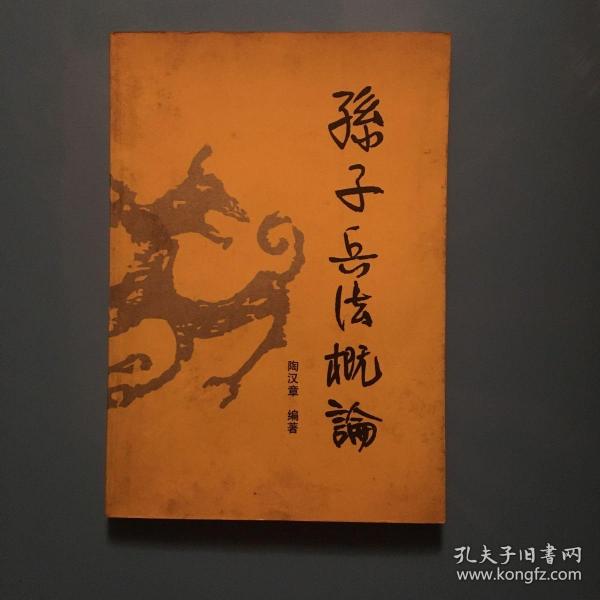 孫子兵法概論
陶汉章 编著
孔夫子旧書网
www.kongfz.com